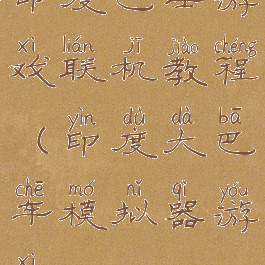 xì lián jī jiào chéng
戏联机教程
yìn dù dà bā
（印度大巴
chē mó nǐ qì yóu
车模拟器游
xì